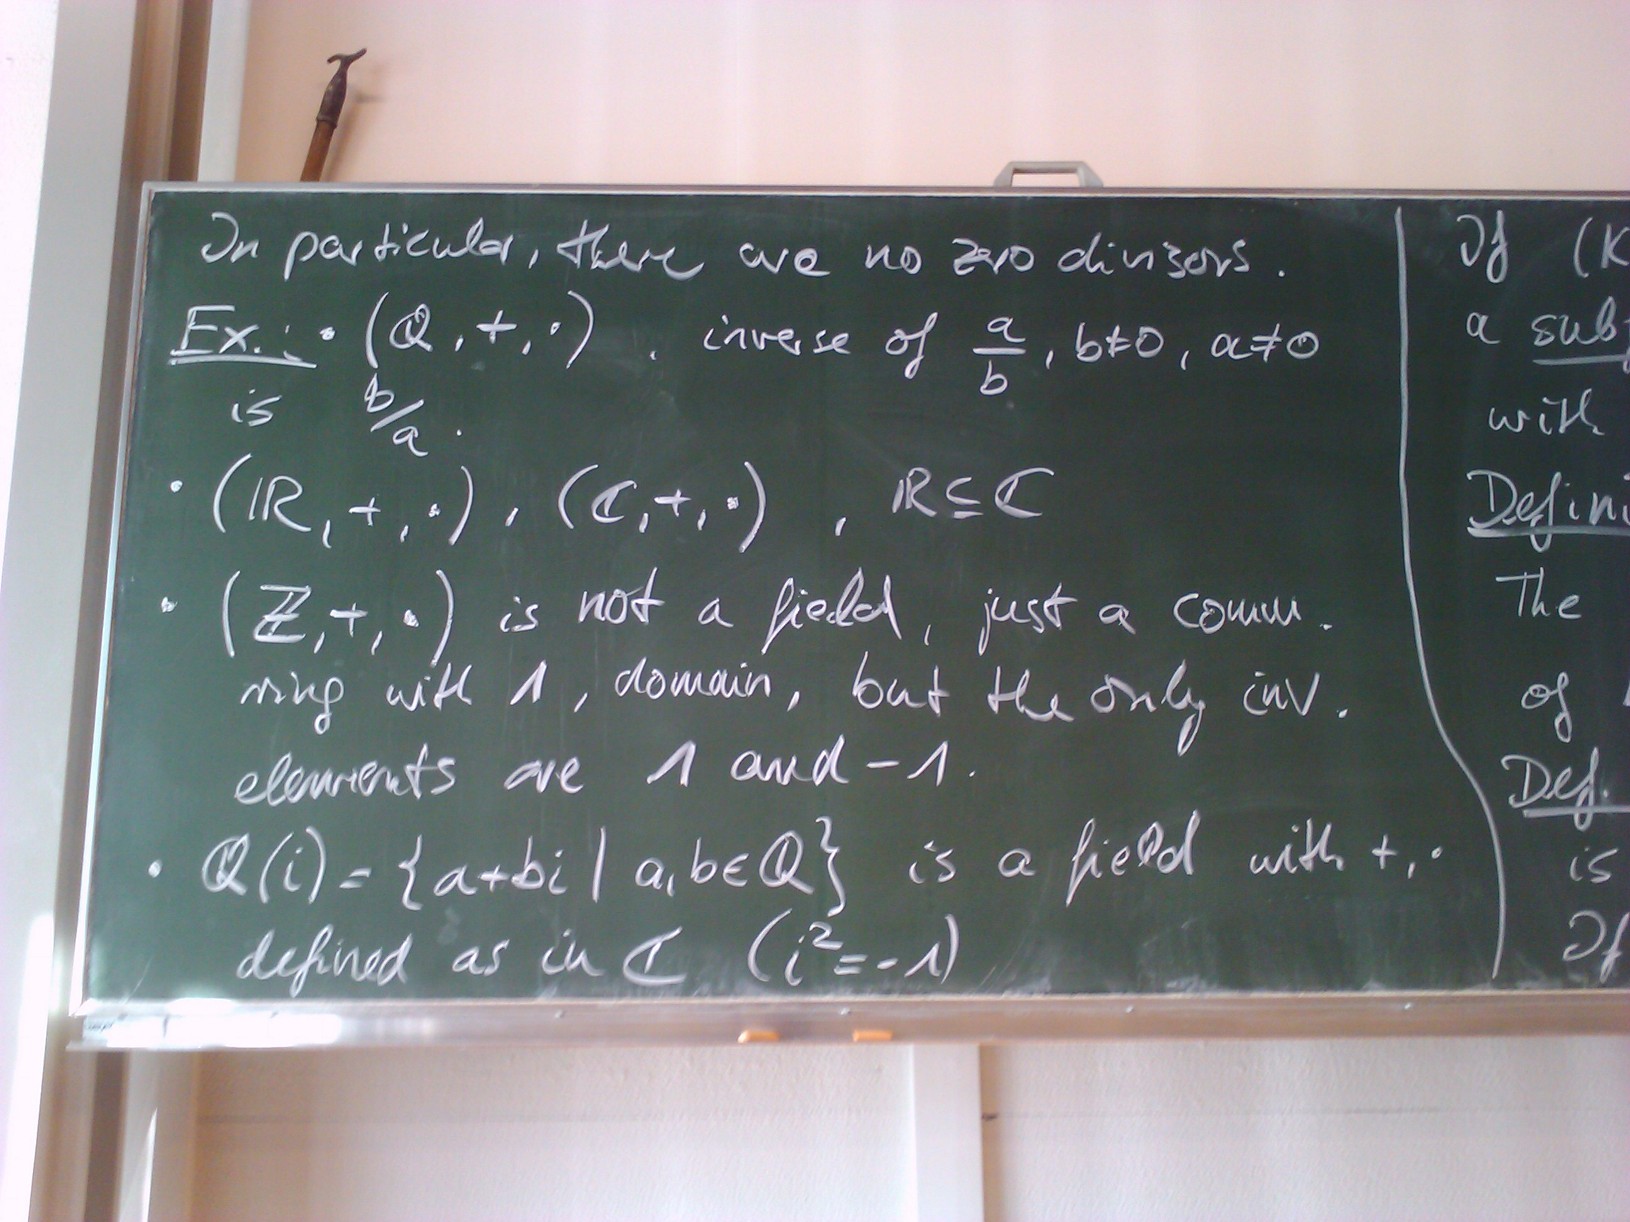 In particular, there are no zero divisors.
Ex.: • (ℚ, +, ·). inverse of a/b, b≠0, a≠0
is b/a.
• (ℝ, +, ·), (ℂ, +, ·), ℝ⊆ℂ
• (ℤ, +, ·) is not a field, just a comm.
ring with 1, domain, but the only inv.
elements are 1 and -1.
• ℚ(i) = {a+bi | a,b∈ℚ} is a field with +, ·
defined as in ℂ (i²=-1)
If (K
a
with
The
of
Def.
is
If